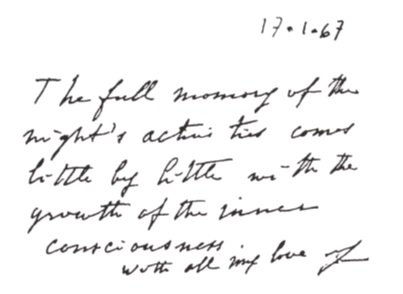 17.1.67
The full memory of the
night's activities comes
little by little with the
growth of the inner
consciousness.
with all my love